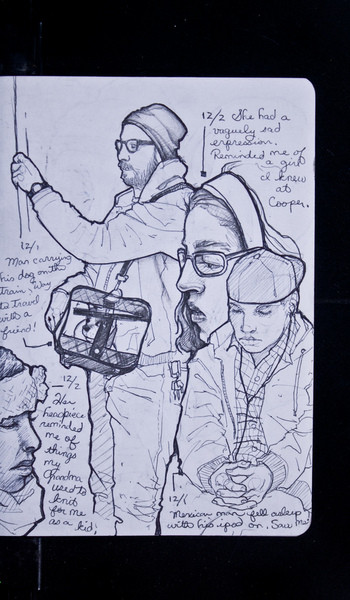 12/2 She had a
vaguely sad
expression.
Reminded me of
a girl
I knew
at
Cooper.
12/1
Man carrying
his dog on the
train. Way
to travel
with a
friend!
12/2
Her
headpiece
reminded
me of
things
my
Grandma
used to
knit
for me
as a kid!
12/1
Mexican man fell asleep
with his ipod on. Saw me